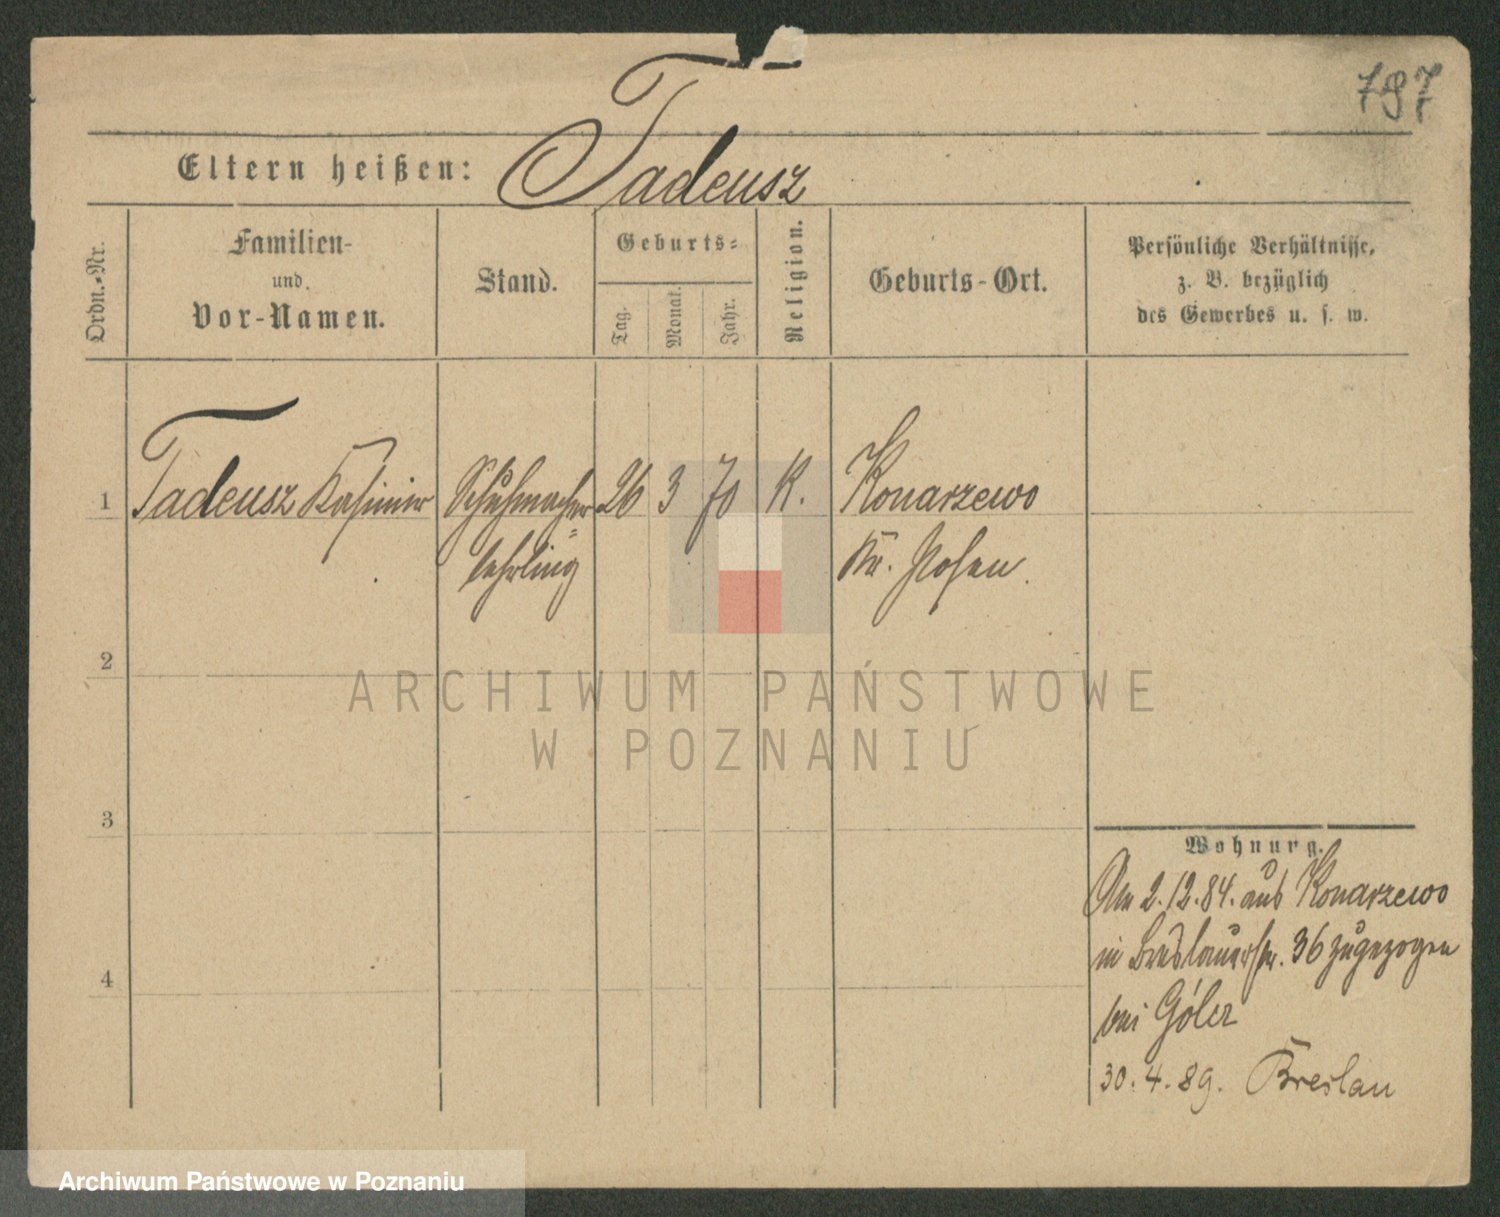 797
Eltern heißen: Tadeusz
Ordn.-Nr.
Familien-
und
Vor-Namen.
Stand.
Geburts-
Tag.
Monat.
Jahr.
Religion.
Geburts-Ort.
Persönliche Verhältnisse,
z. B. bezüglich
des Gewerbes u. s. w.
1 Tadeusz Kasimir Schuhmacher= 26 3 70 K. Konarzewo
lehrling Kr. Posen.
2
ARCHIWUM PAŃSTWOWE
W POZNANIU
3
Wohnung.
Am 2.12.84. aus Konarzewo
in Breslauerstr. 36 zugezogen
4
bei Góler
30.4.89. Breslau
Archiwum Państwowe w Poznaniu